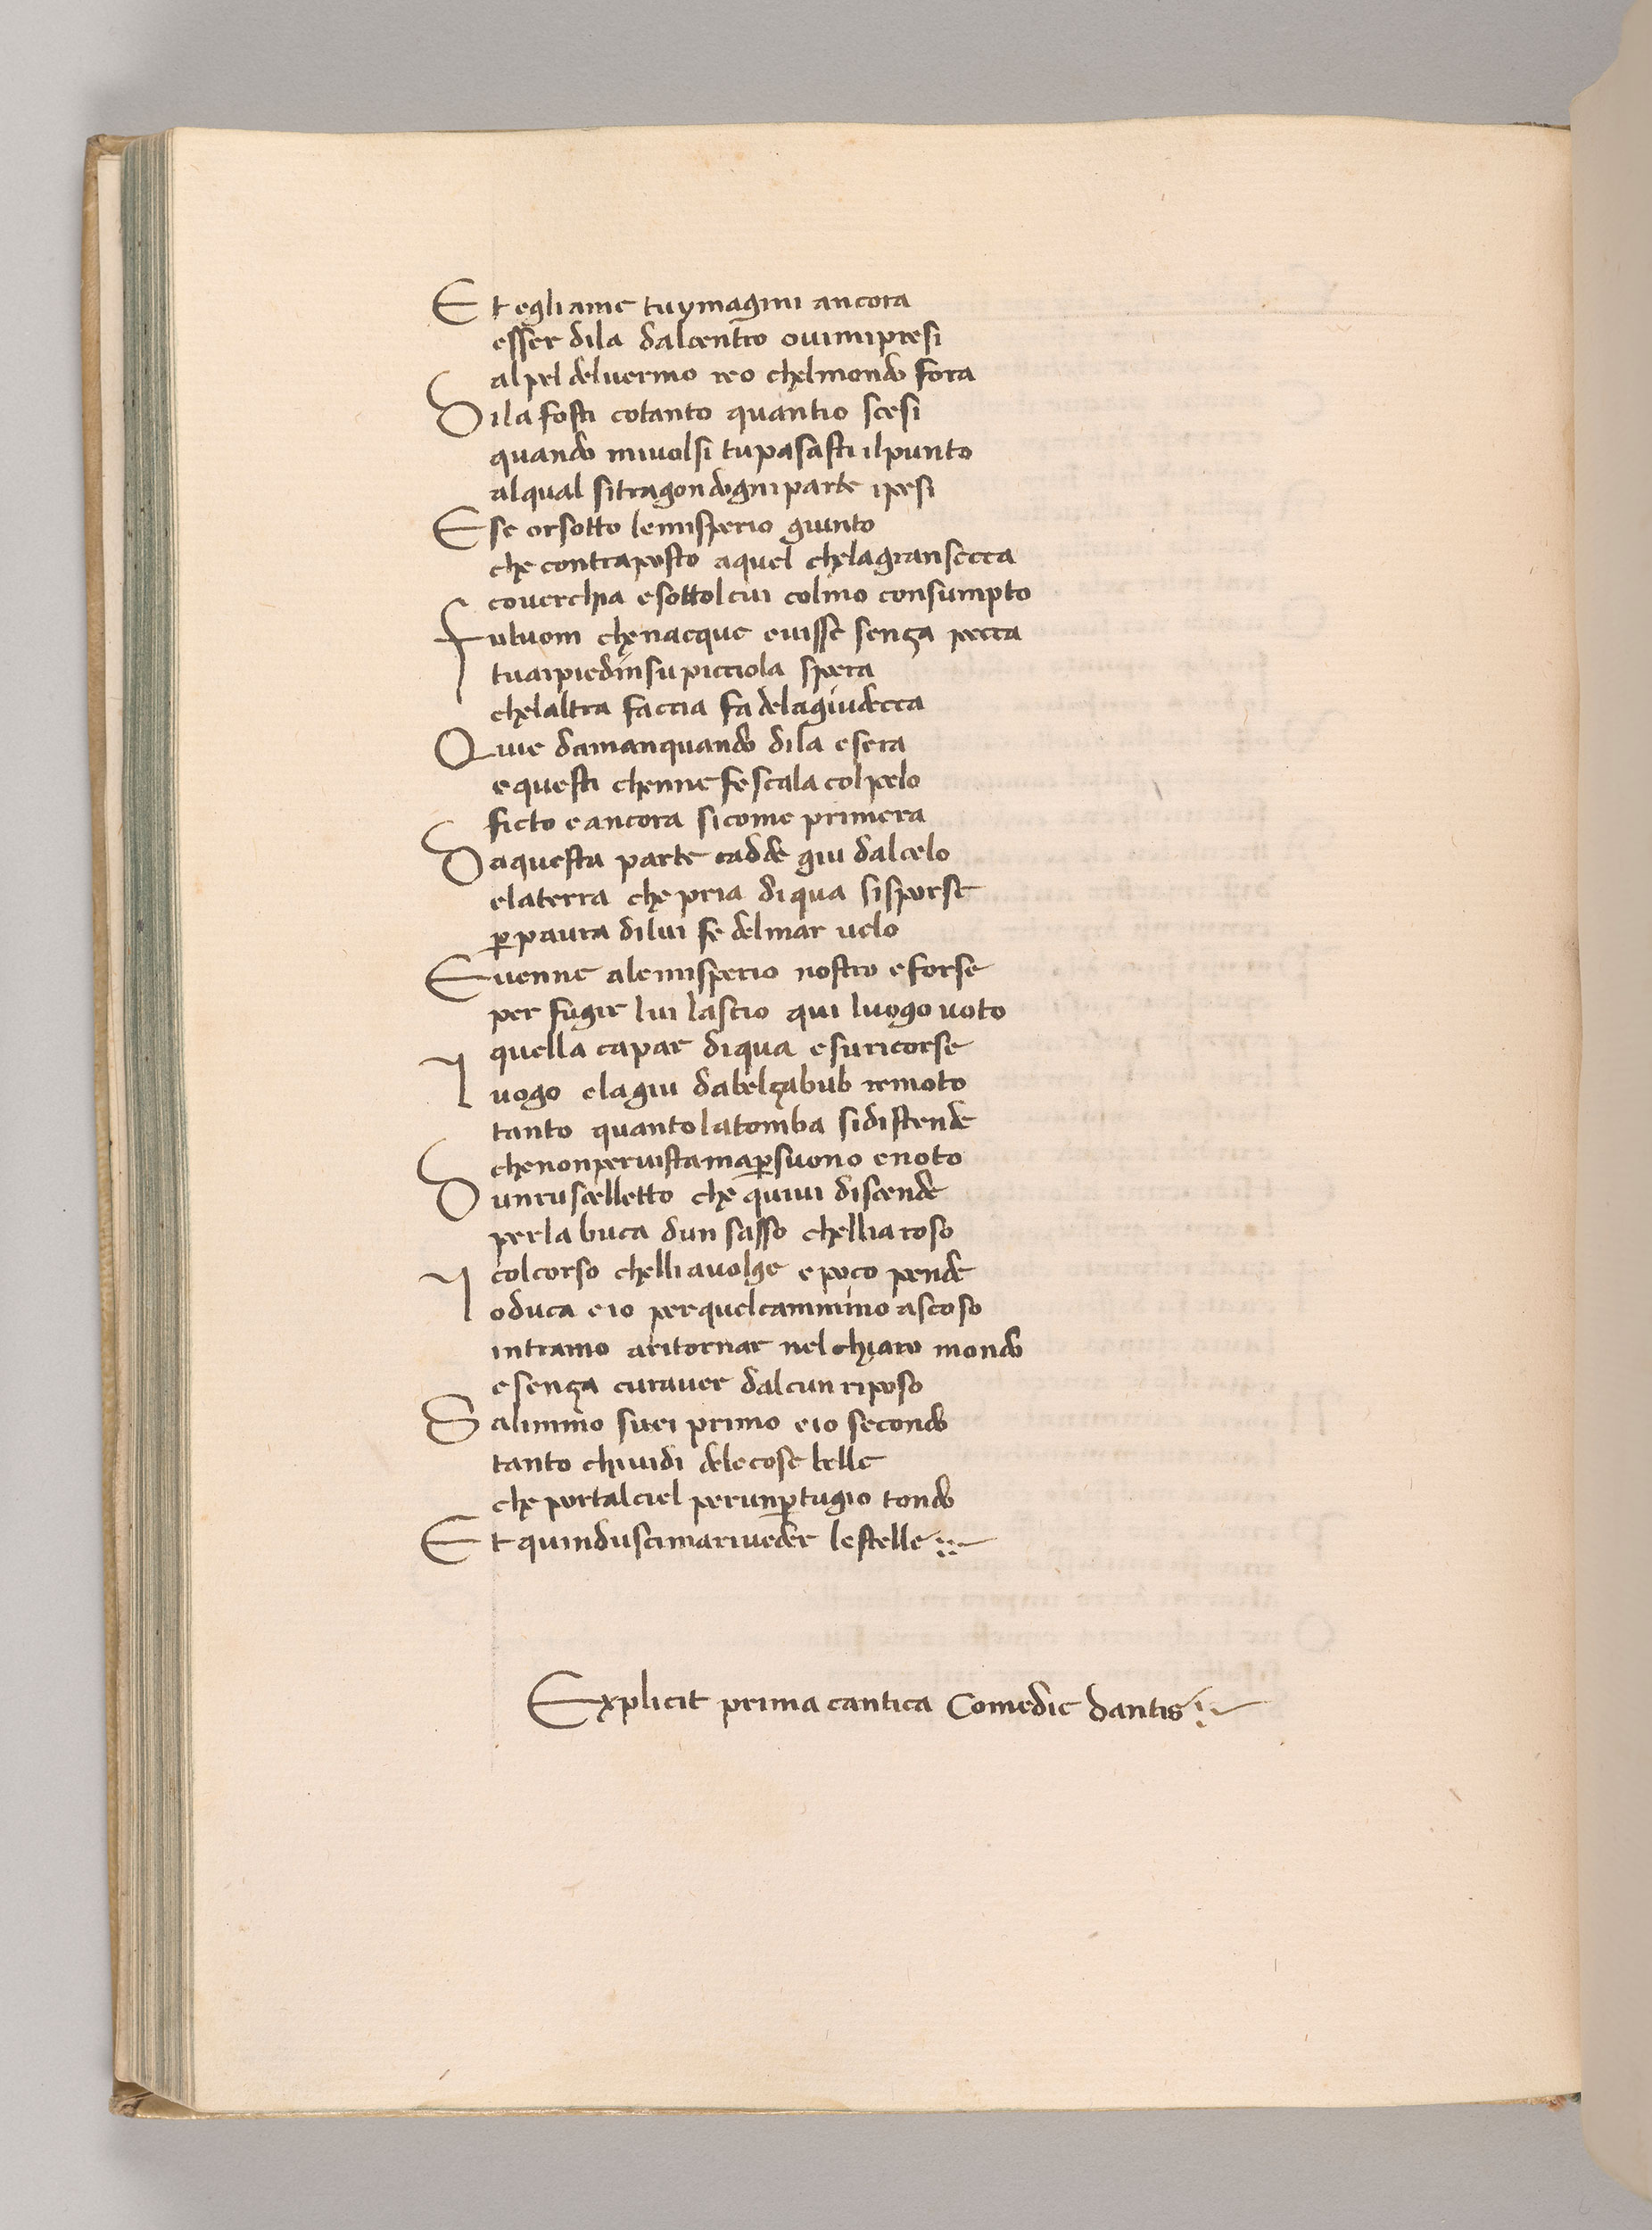 Et egli ame tu ymagini ancora
esser dila dalcentro ovimipresi
alpel delvermo reo chelmondo fora
Dila fosti cotanto quantio scesi
quando mivolsi tupasasti ilpunto
alqual sitragon dogniparte ipesi
E se orsotto lemisperio giunto
che contraposto aquel chelagransecca
coverchia esottolcui colmo consumpto
fulvom che nacque evisse sença pecca
tuaipiedinsu picciola spera
chelaltra faccia fa delagiudecca
Quie damanquando dila esera
equesti chenne fe scala colpelo
ficto eancora sicome primera
Daquesta parte cadde giu dalcelo
elaterra che pria diqua sisporse
ꝑ paura dilui fe delmar velo
E venne alemisperio nostro eforse
per fugir lui lascio qui luogo voto
quella capar diqua esuricorse
luogo elagiu dabelçabub remoto
tanto quanto latomba sidistende
chenonpervista maꝑsuono enoto
Dunruscelletto che quivi discende
perla buca dun sasso chellia roso
colcorso chelliavolge epoco pende
loduca eio perquelcammino ascoso
intramo aritornar nelchiaro mondo
esença curaver dalcun riposo
Salimmo suei primo eio secondo
tanto chividi delecose belle
che portalciel perunꝑtugio tondo
Et quinduscimariveder lestelle
Explicit prima cantica Comedie dantis